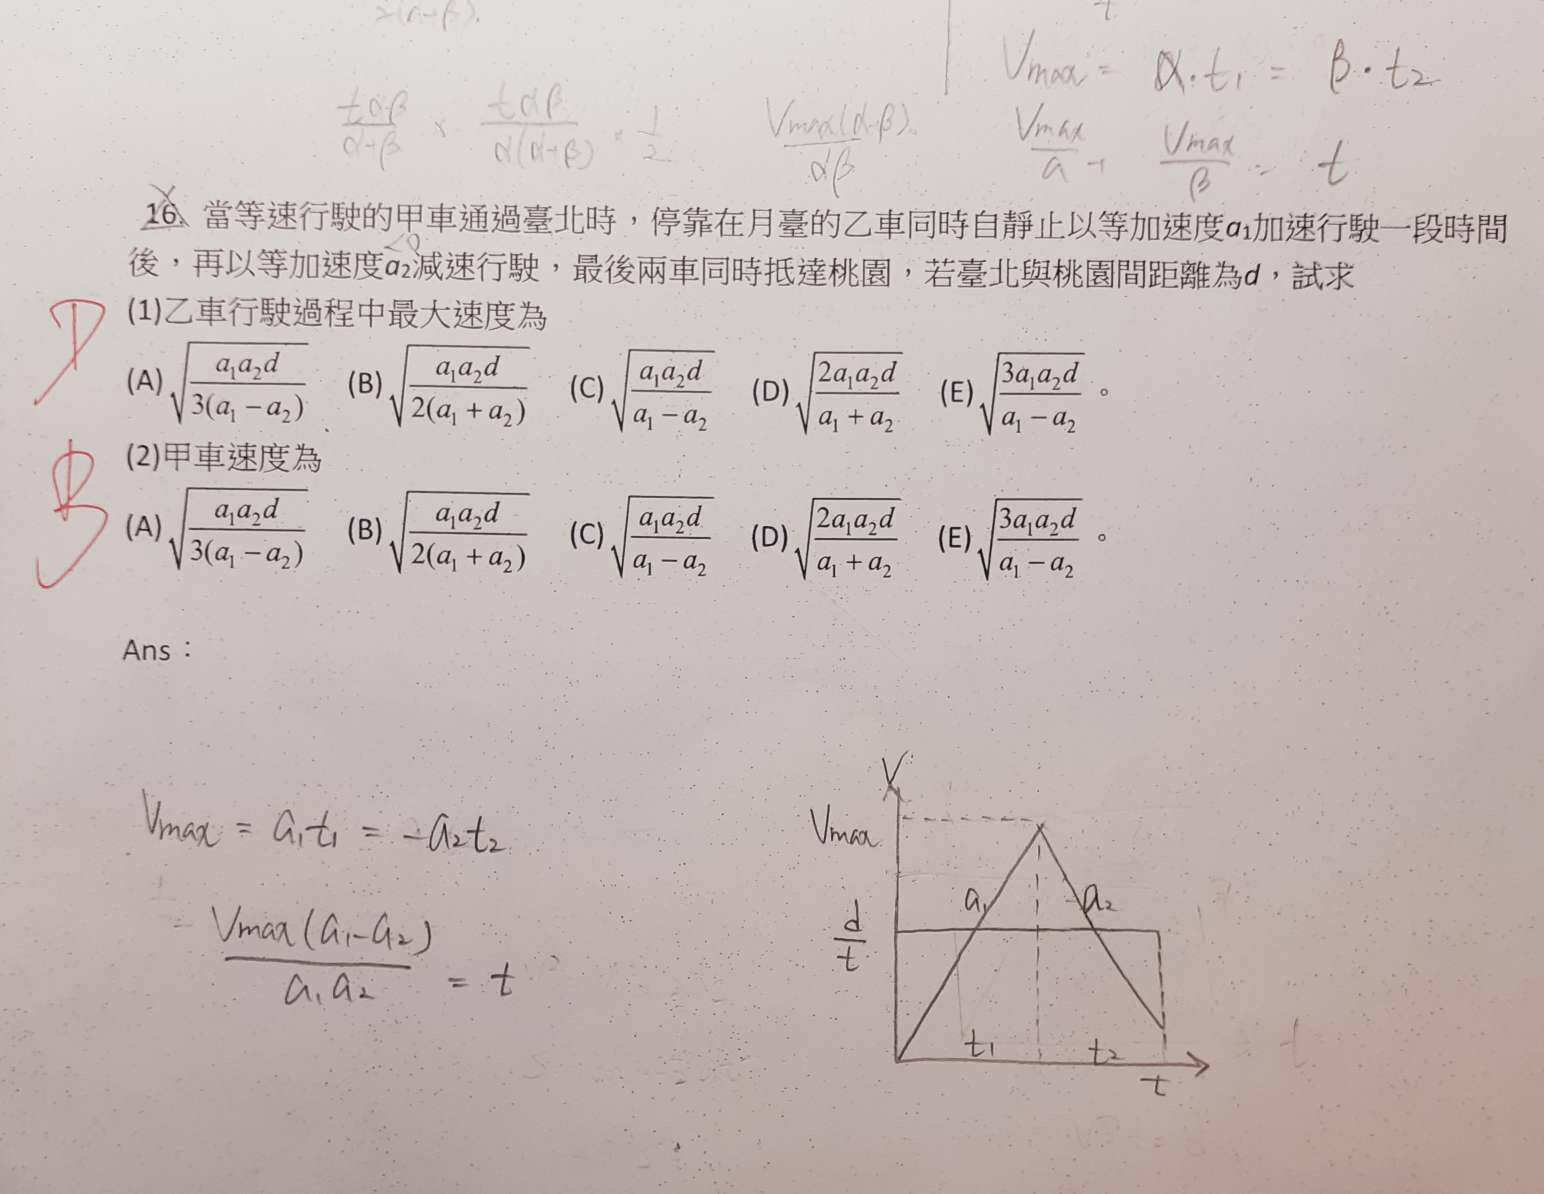 t
Vmax = α·t₁ = β·t₂
tαβ/(α+β) × tαβ/(α(α+β)) × 1/2
Vmax(α+β)/αβ
Vmax/a + Vmax/β = t
16. 當等速行駛的甲車通過臺北時，停靠在月臺的乙車同時自靜止以等加速度a₁加速行駛一段時間
<0
後，再以等加速度a₂減速行駛，最後兩車同時抵達桃園，若臺北與桃園間距離為d，試求
D
(1)乙車行駛過程中最大速度為
(A) √(a₁a₂d/3(a₁ − a₂)) (B) √(a₁a₂d/2(a₁ + a₂)) (C) √(a₁a₂d/(a₁ − a₂)) (D) √(2a₁a₂d/(a₁ + a₂)) (E) √(3a₁a₂d/(a₁ − a₂)) 。
B
(2)甲車速度為
(A) √(a₁a₂d/3(a₁ − a₂)) (B) √(a₁a₂d/2(a₁ + a₂)) (C) √(a₁a₂d/(a₁ − a₂)) (D) √(2a₁a₂d/(a₁ + a₂)) (E) √(3a₁a₂d/(a₁ − a₂)) 。
Ans：
Vmax = a₁t₁ = -a₂t₂
Vmax(a₁-a₂)/a₁a₂ = t
V
Vmax
a₁ -a₂
d/t
t₁ t₂
t